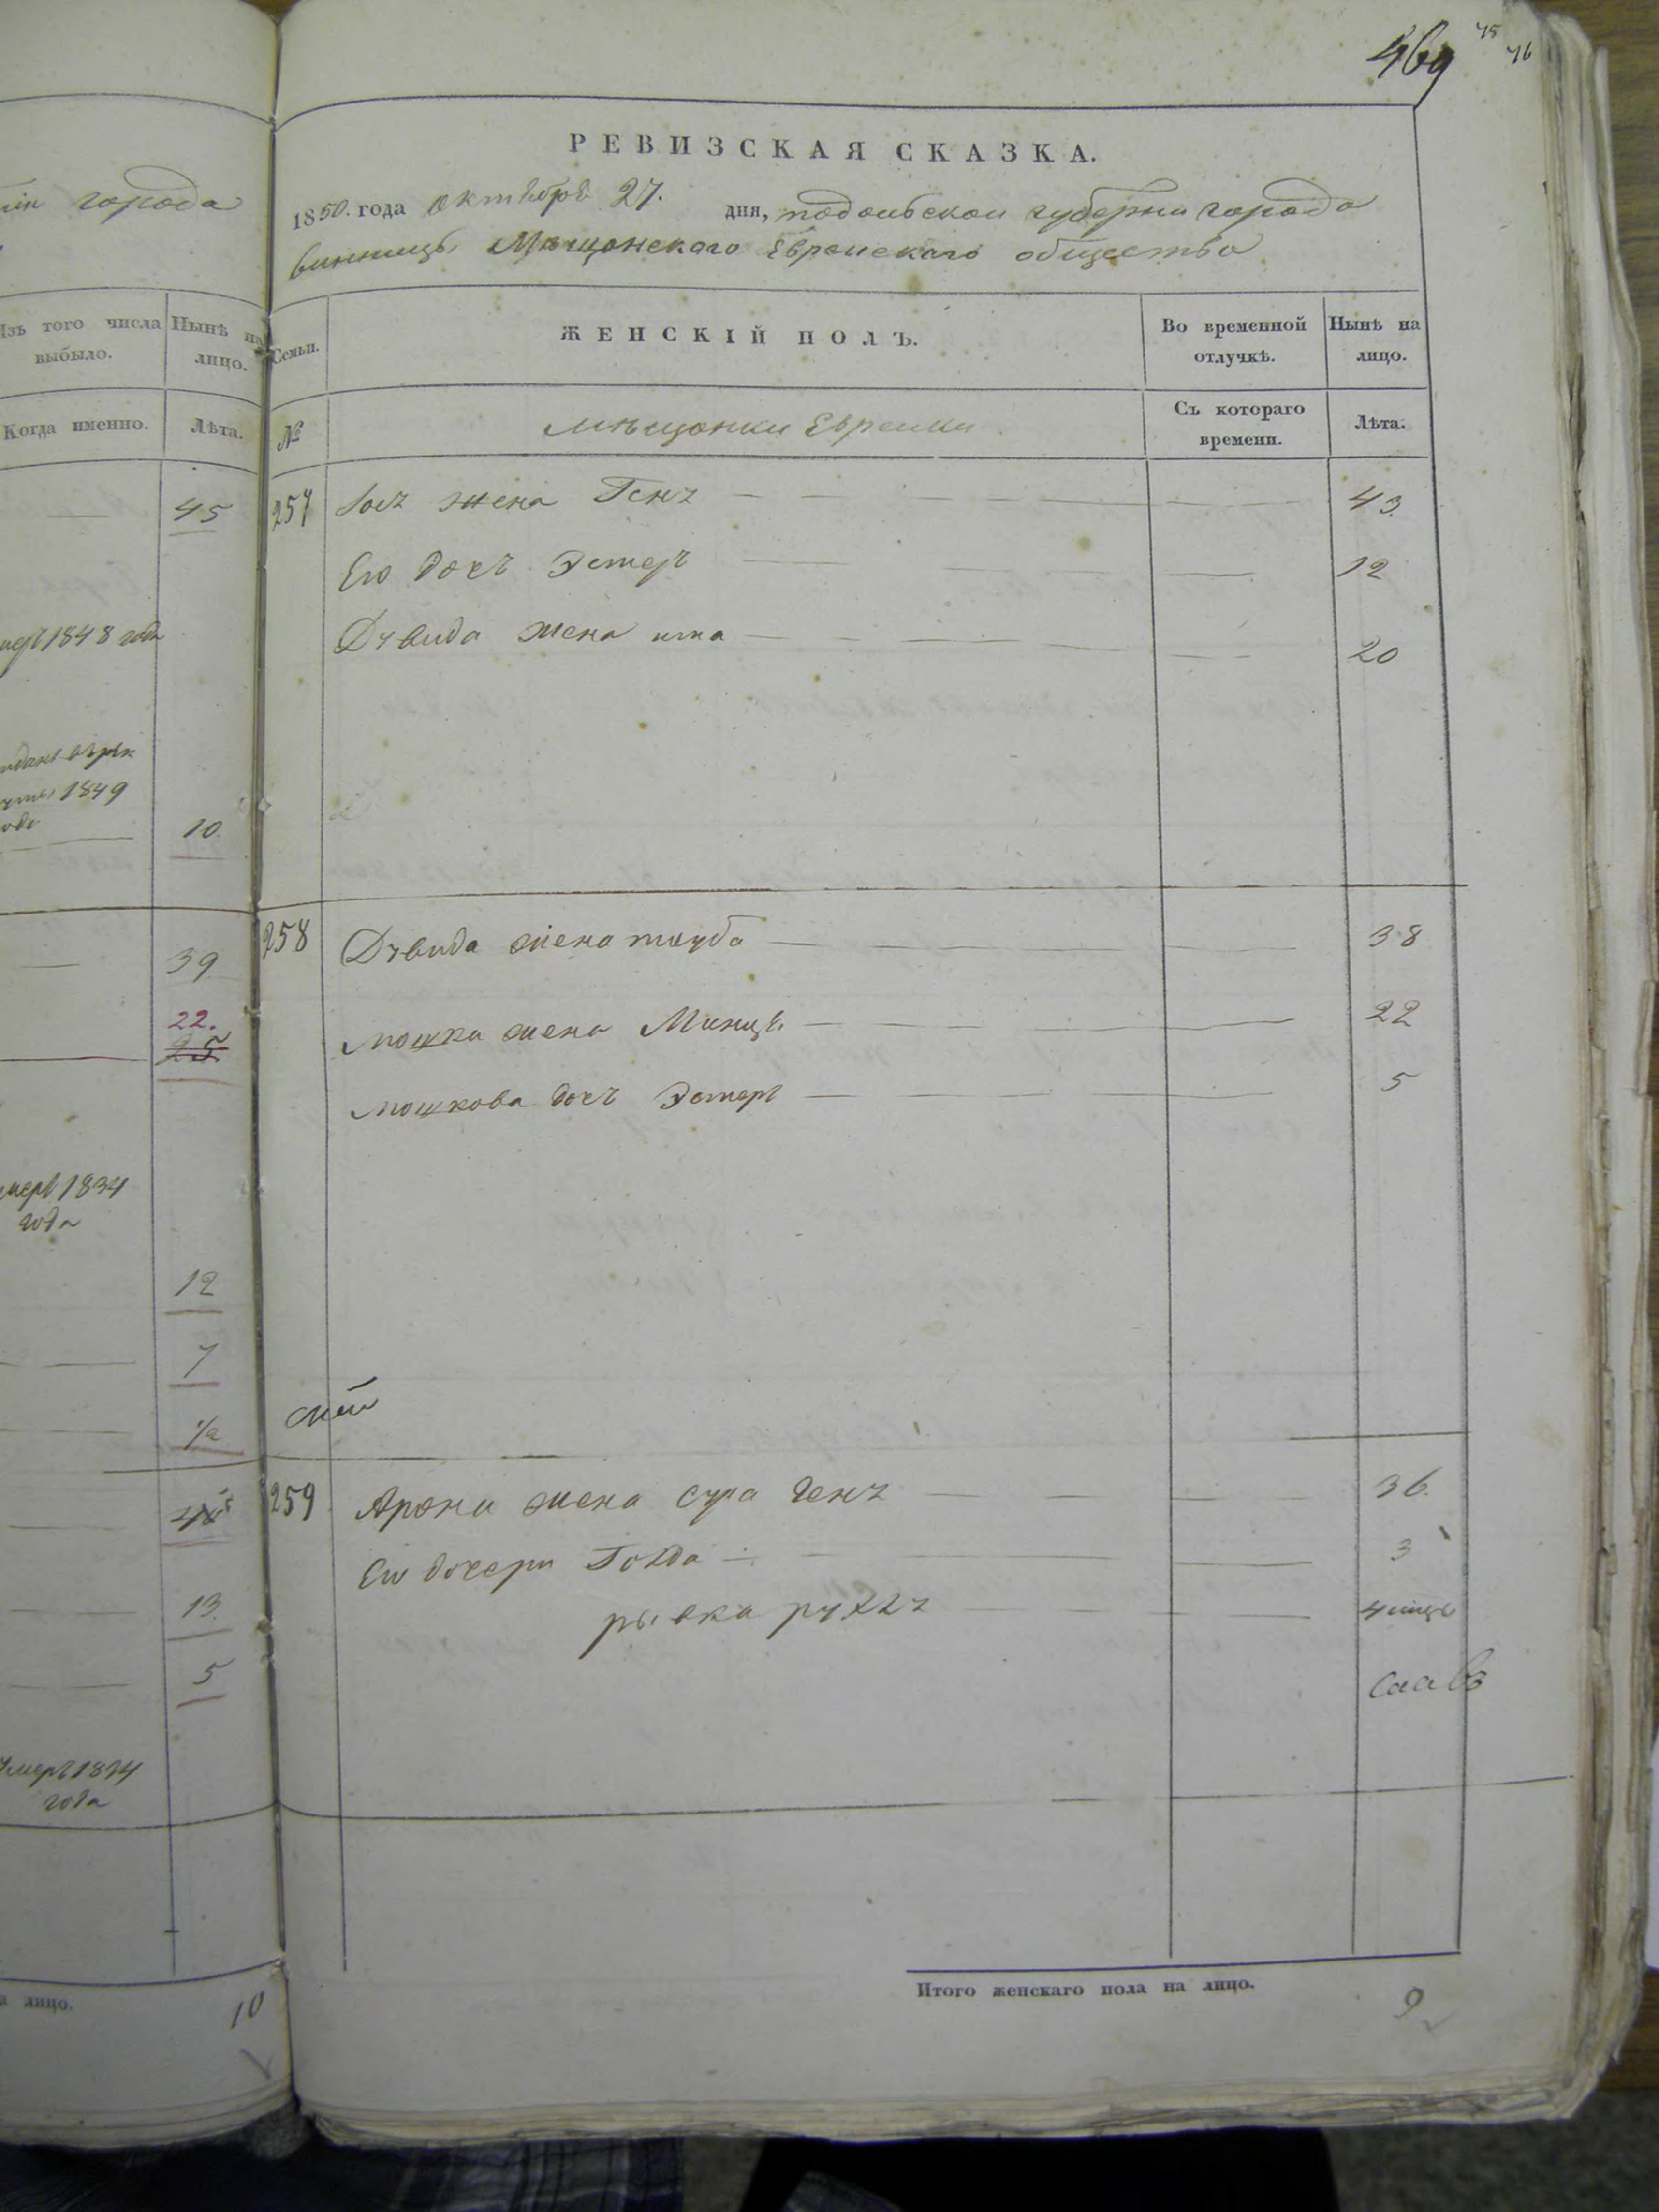 469 45 46
РЕВИЗСКАЯ СКАЗКА.
города
1850. года октября 27. дня, подольской губернии города
винницы Мещанского Еврейского общества
Изъ того числа выбыло.
Нынѣ на лицо.
Семьи.
ЖЕНСКІЙ ПОЛЪ.
Во временной отлучкѣ.
Нынѣ на лицо.
Когда именно.
Лѣта.
№
мещанки Еврейки
Съ котораго времени.
Лѣта.
45
257 жена Геня 43.
Его дочь Эстеръ 12
1848 года
Дувида жена ита 20
1849
10
258 Дувида жена тауба 38
39
22.
25
мошка жена Минца 22
мошкова дочь Эстеръ 5
умеръ 1834
года
12
7
1/2
259 Арона жена сура Геня 36.
Его дочери Голда 3
рывка рухля 4
13.
5
умеръ 1834
года
Итого женскаго пола на лицо. 9
лицо. 10